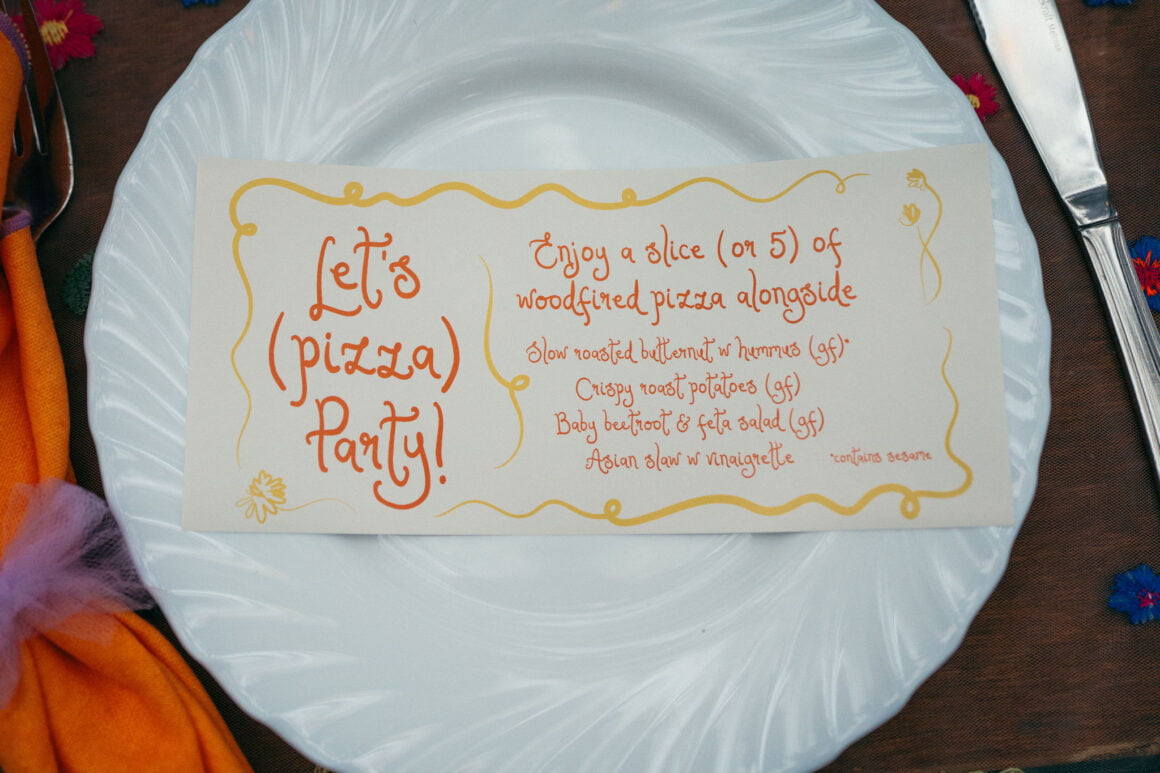 Let's
(pizza)
Party!
Enjoy a slice (or 5) of
woodfired pizza alongside
Slow roasted butternut w hummus (gf)*
Crispy roast potatoes (gf)
Baby beetroot & feta salad (gf)
Asian slaw w vinaigrette
*contains sesame